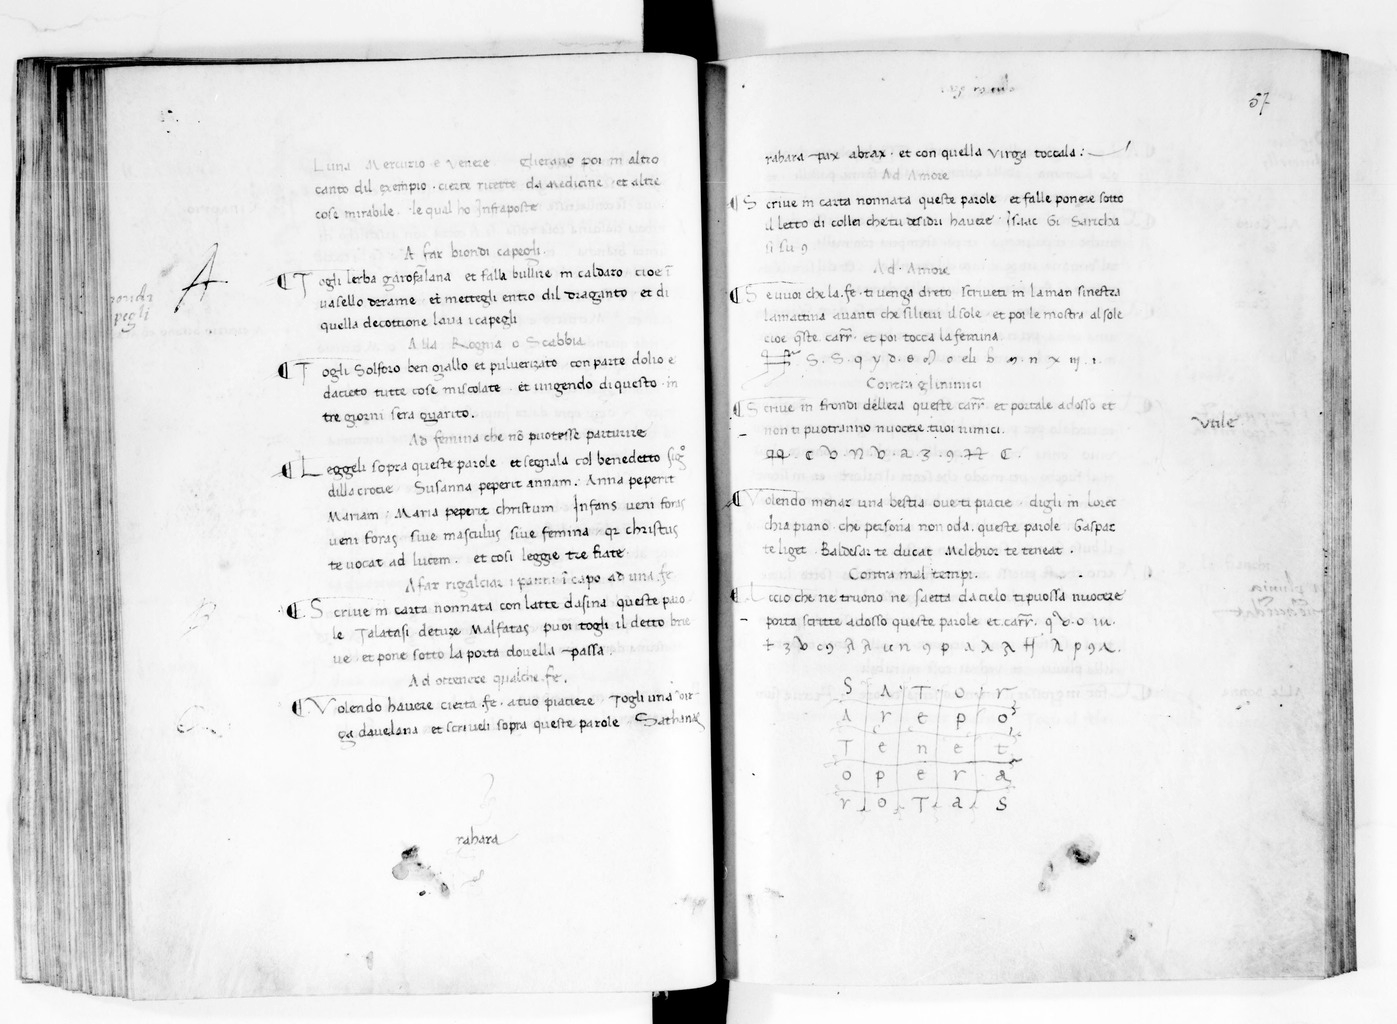 Luna Mercurio e Venere Gherano poi in altro
canto dil tempio cierte ricette da medicine et altre
cose mirabile le qual ho Infraposte
A far biondi capegli.
Togli lerba garofalana et falla bullire in caldaro cioe ī
vasello derame et mettegli entro dil draganto et di
quella decottione lava i capegli
Alla Rogna o Scabbia
Togli Solforo ben giallo et pulverizato con parte dolio e
daceto tutte cose miscolate et ungendo di questo in
tre giorni sera guarito.
Ad femina che nō puotesse parturire
Leggeli sopra queste parole et segnala col benedetto sigº
dilla crocie Susanna peperit annam. Anna peperit
Mariam Maria peperit christum Infans veni foras
veni foras sive masculus sive femina qr christus
te vocat ad lucem. et cosi leggie tre fiate
A far rigalciar i panni ī capo ad una fe
Scrive in carta nonnata con latte dasina queste paro
le Talatasi deture Malfatas puoi togli il detto brie
ve et pone sotto la porta dovella passa.
Ad ottenere qualche fe.
Volendo havere cierta fe a tuo piaciere Togli una vir
ga davelana et scriveli sopra queste parole Sathanas
rahara
57
rahara pax abrax et con quella virga toccala:
Ad Amore
Scrive in carta nonnata queste parole et falle ponere sotto
il letto di collei che tu desidri havere Isaac Gi Saricha
si su 9
Ad Amore
Se vuoi che la fe ti venga dreto scriveti in la man sinestra
la mattina avanti che si lievi il sole et poi le mostra al sole
cioe q̄ste carr̄ et poi tocca la femina
S. S. q y d. s o eli b m. n x iij. i.
Contra gl inimici
Scrive in frondi dellera queste carr̄ et portale adosso et
non ti puotranno nuocere tuoi nimici.
utile
Volendo menar una bestia ove ti piacie digli in lorec
chia piano che persona non oda queste parole Gaspar
te liget Baldesar te ducat Melchior te teneat.
Contra mal tempi.
Accio che ne truono ne saetta da cielo ti puossa nuocere
porta scritte adosso queste parole et carr̄.
S A T o r
A r e p o
T e n e t
o p e r a
r o T a s